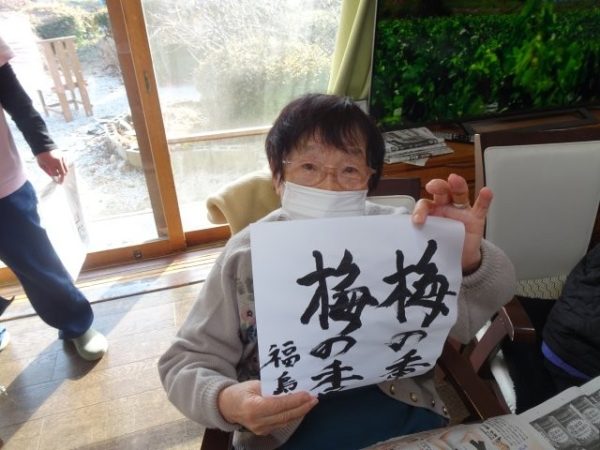 梅の香
梅の香
福島